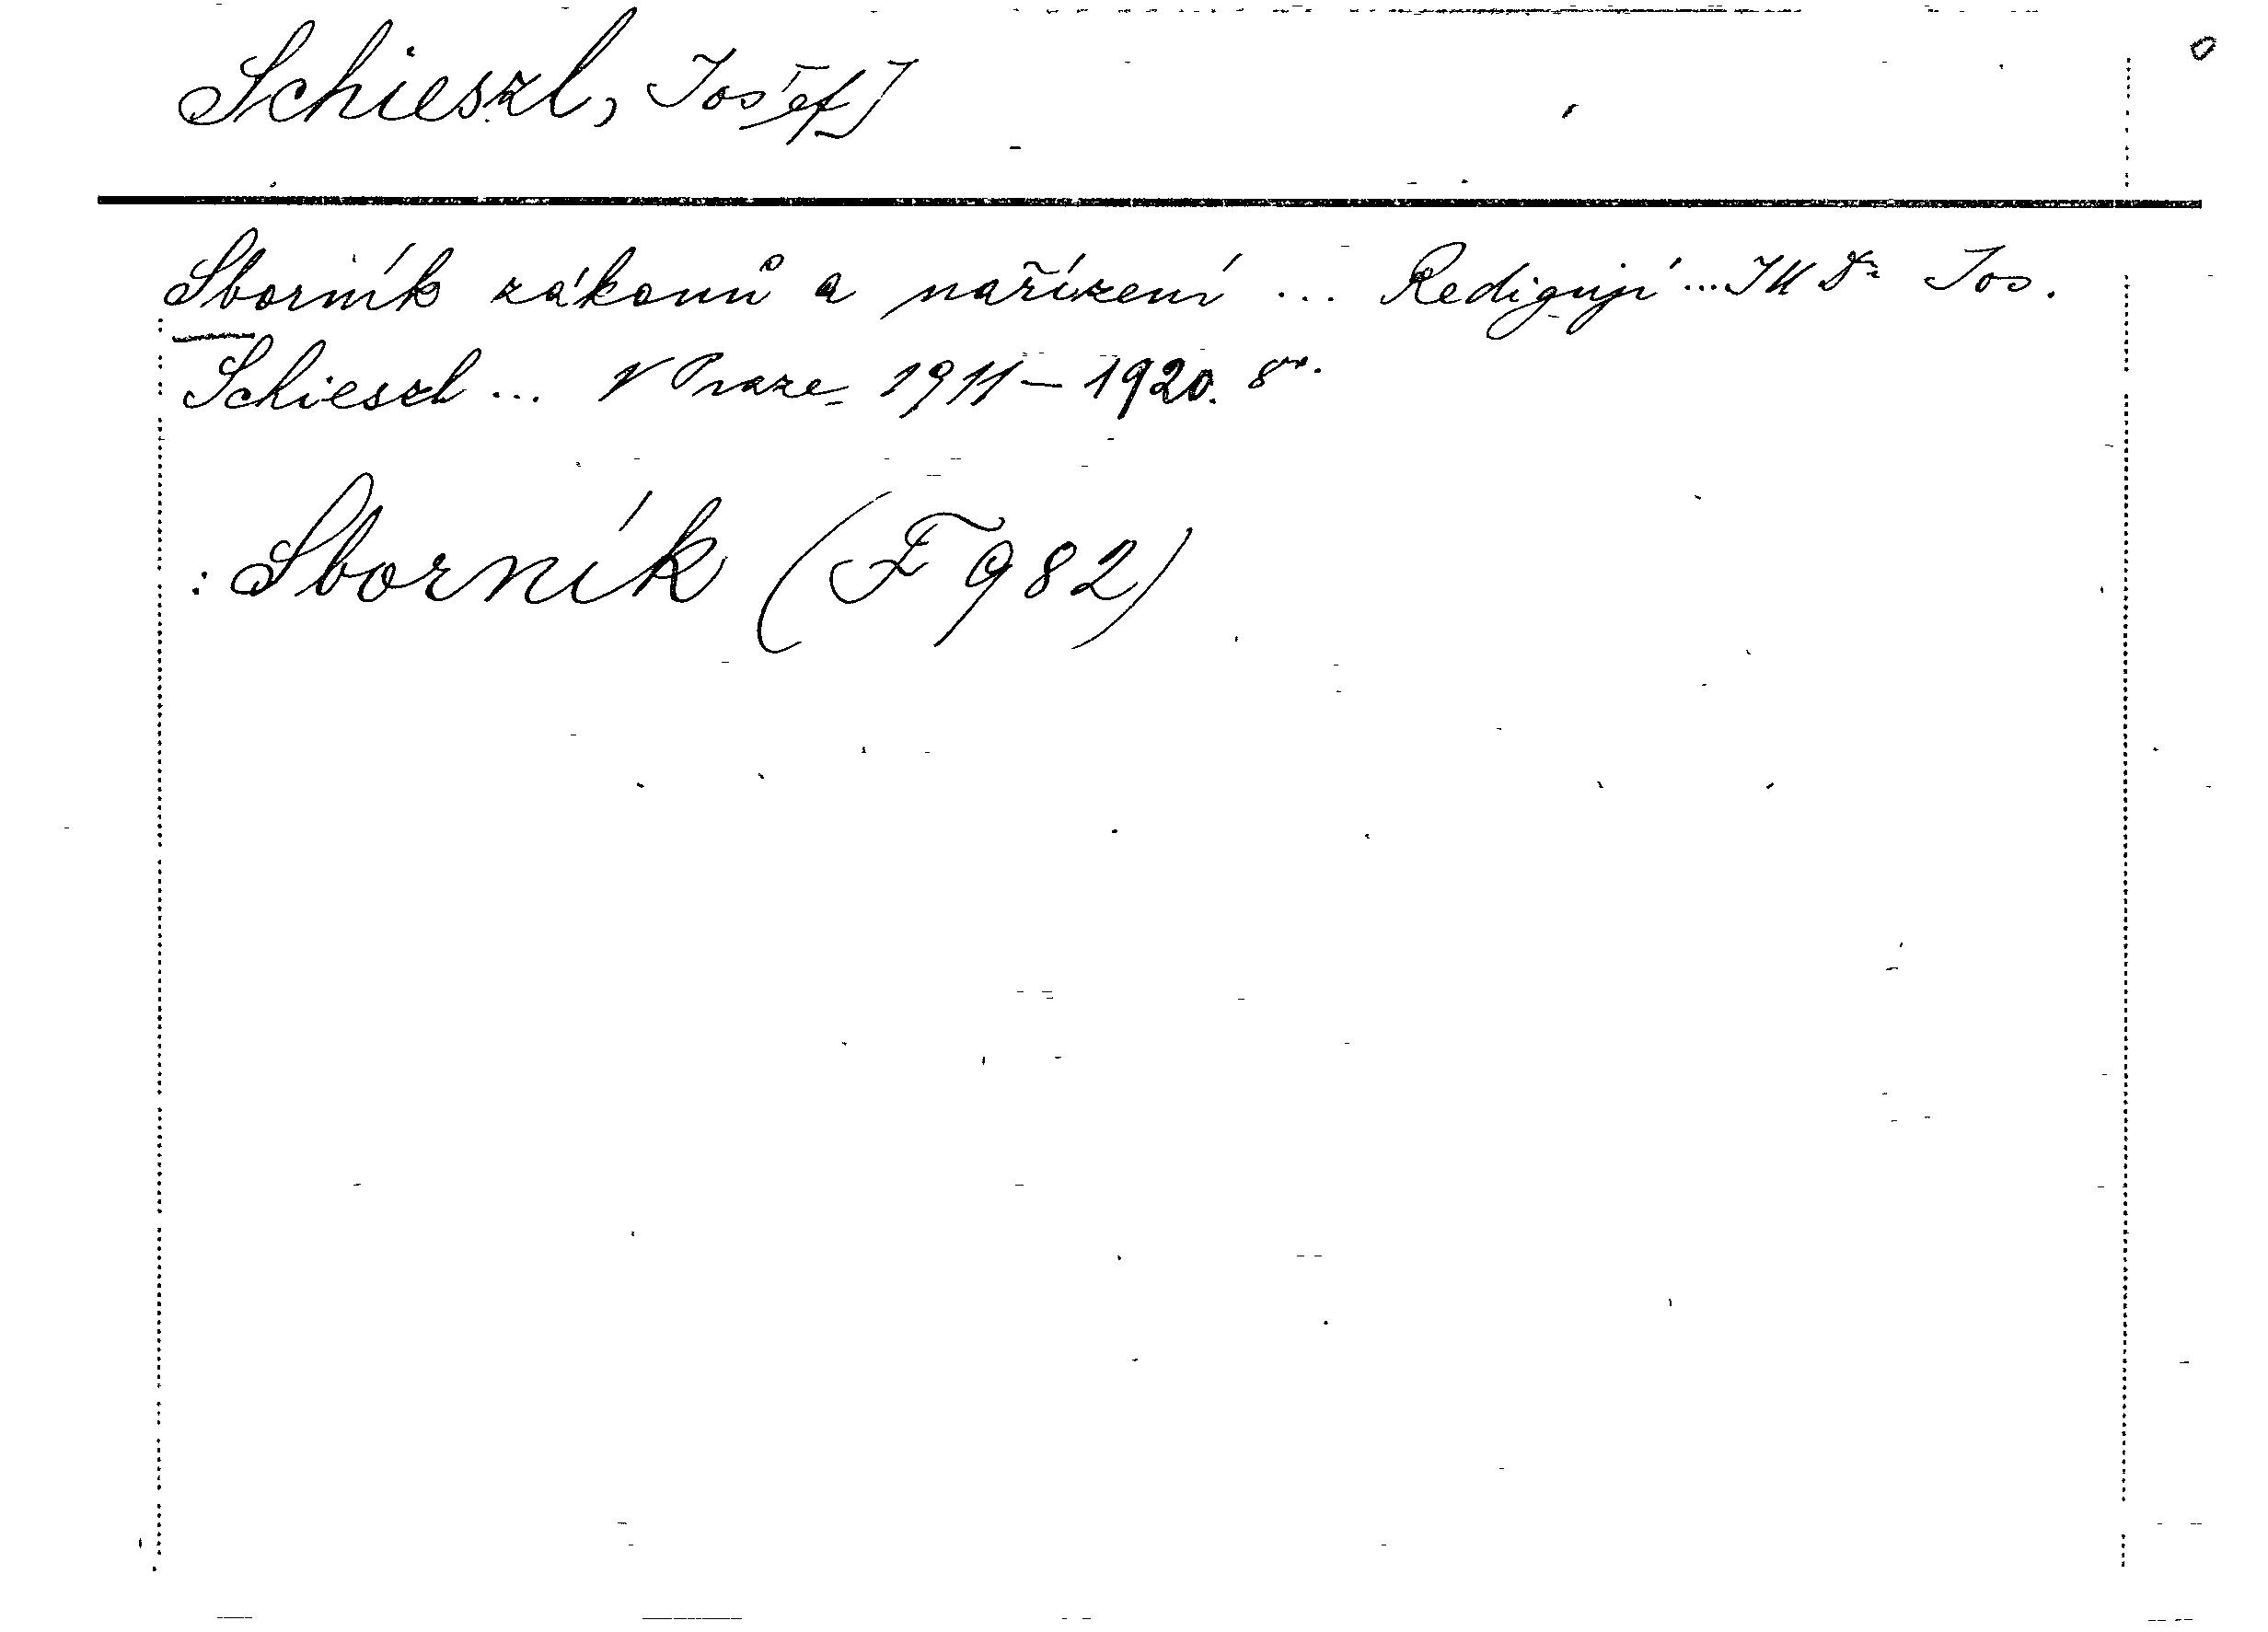 Schieszl, Jos[ef]
Sborník zákonů a nařízení ... Redigují ... JUDr Jos.
Schieszl ... V Praze 1911–1920. 8vo.
: Sborník (F 982)